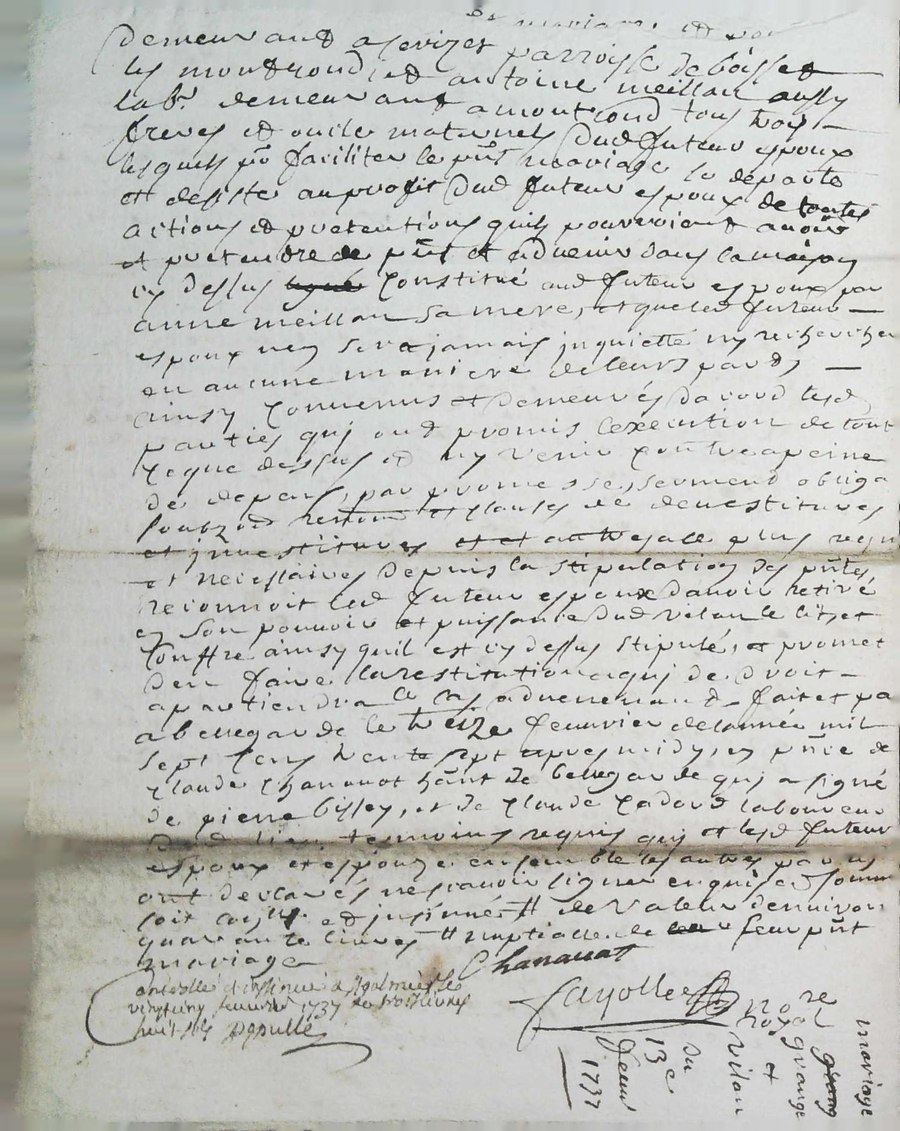 et mariage
demeurand a serizet parroisse de boisset
les montrond, et antoine meillan aussy
labr. demeurant a montrond tous trois
freres et oncle maternels dud futeur espoux
lesquels pr faciliter le pnt mariage se departe
et desiste au profit dud futeur espoux de toutes
actions et pretentions quils pourroient avoir
et pretendre de pnt et advenir dans la maison
cy dessus constitué aud futeur espoux par
anne meillan sa mere, et que led futeur
espoux ney sera jamais inquietté ny recherché
en aucune maniere de leurs parts,
ainsy convenus et demeurés dacord lesd
parties qui ont promis lexecution de tout
ce que dessus et ny venir contre a peine
de depens, par promesse, serment obliga
soubz renon et clauses de devestitures
et investitures et autres a ce plus requi
et necessaires depuis la stipulation des pntes
reconnoit led futeur espoux davoir retiré
en son pouvoir et puissance dud vilan le lit et
coffre ainsy quil est cy dessus stipulé, et promet
den faire la restitution a qui de droit
apartiendra le cas advenemant fait et pa
a bellegarde le treize feuvrier de lannée mil
sept cens trente sept apres midy, en pnce de
claude Chanauat hant de bellegarde qui a signé
de pierre bissey, et de claude cadord laboureur
dud lieu temoins requis qui et lesd futeur
espoux et espouze ensemble les autres parties
ont declarés ne scavoir signer enquis et somm
soit collé et insinués de valeur denviron
quarante livres nuptialle de feur pnt
mariage
Chanauat
Fayolle
controllé et insinué a St galmier le
vingtuny feuvrier 1737 re trois livres
huit sols Depulle
mariage
grange
et
vilan
du
13e
feuv
1737